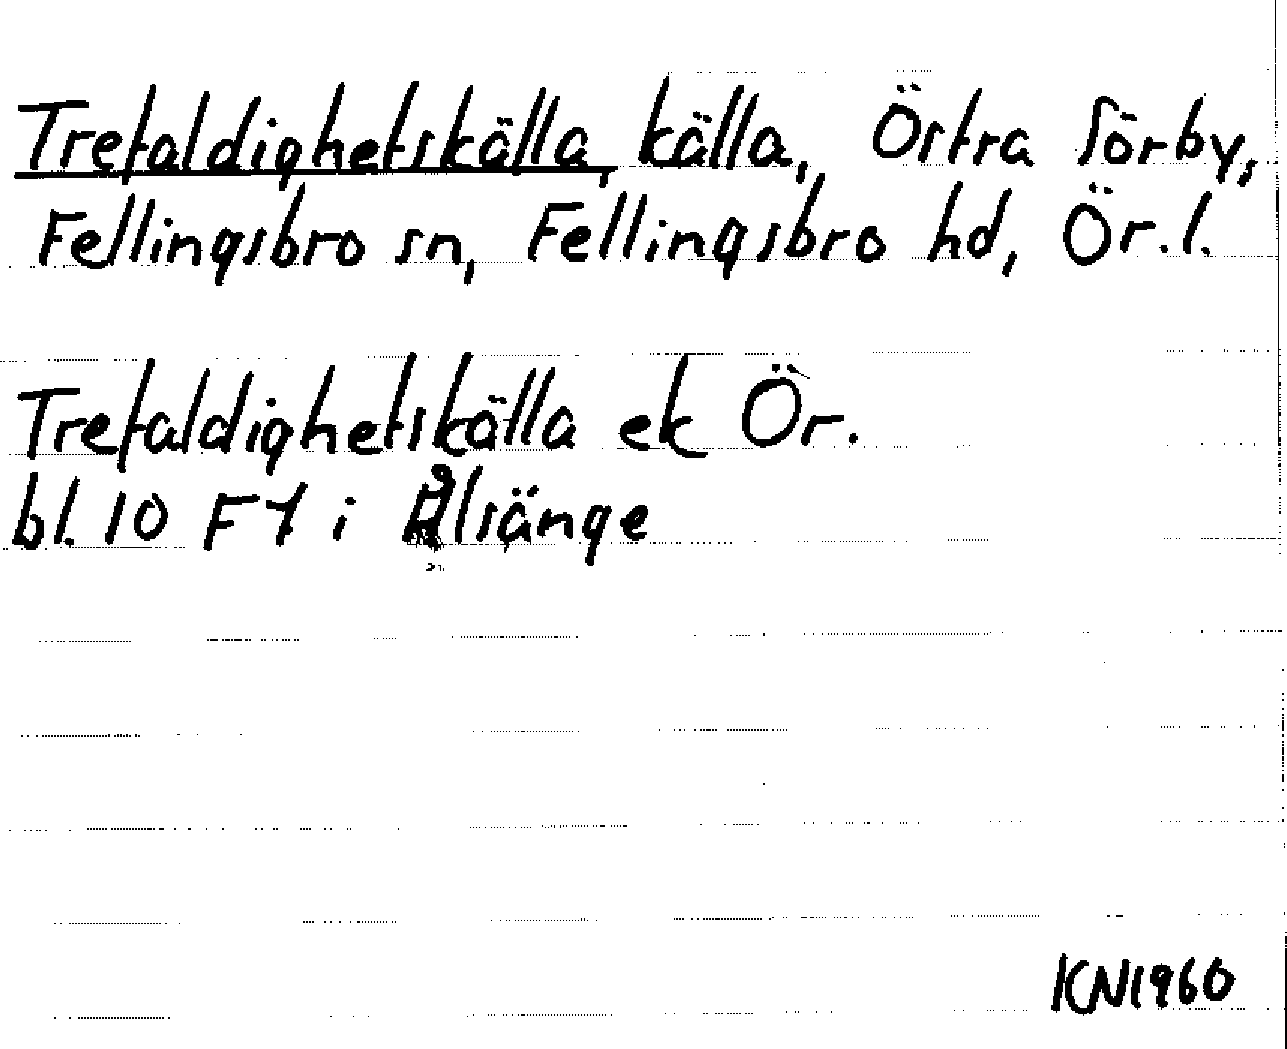 Trefaldighetskälla, källa, Östra Sörby,
Fellingsbro sn, Fellingsbro hd, Ör.l.
Trefaldighetskälla ek Ör.
bl. 10 F7 i Ålsänge
KN1960